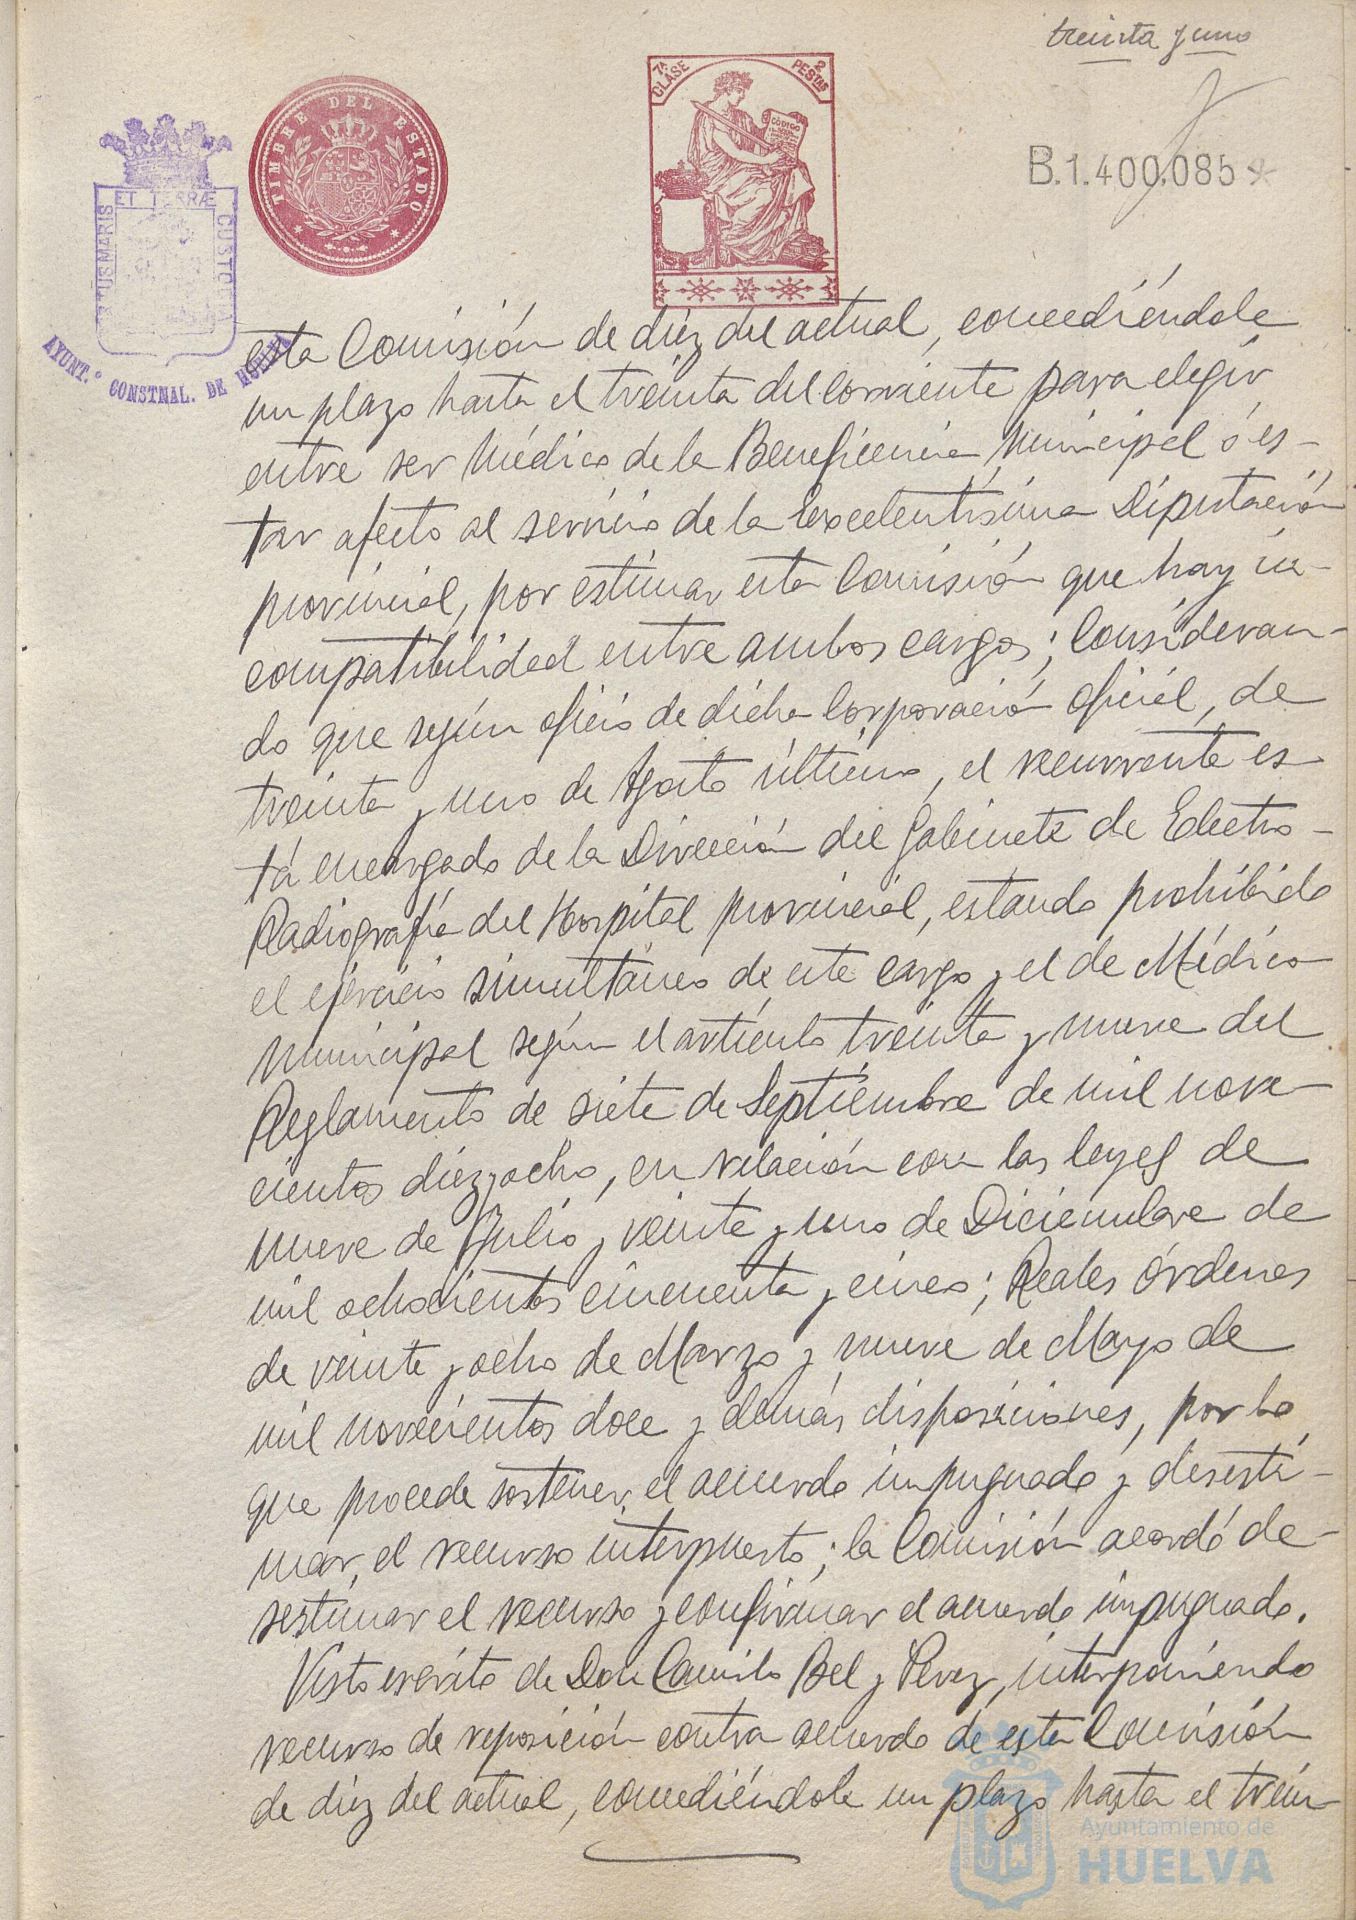 treinta y uno
TIMBRE DEL ESTADO
7ª CLASE
2 PESTAS
CÓDIGO
B.1.400.085*
PORTUS MARIS ET TERRÆ CUSTODIA
AYUNT.º CONSTNAL. DE HUELVA
esta Comisión de diez del actual, concediéndole
un plazo hasta el treinta del corriente para elegir
entre ser Médico de la Beneficencia Municipal ó es-
tar afecto al servicio de la Excelentísima Diputación
provincial, por estimar esta Comisión que hay in-
compatibilidad entre ambos cargos; Consideran-
do que según oficio de dicha Corporación oficial, de
treinta y uno de Agosto último, el recurrente es-
tá encargado de la Dirección del Gabinete de Electro-
Radiografía del Hospital provincial, estando prohibido
el ejercicio simultáneo de este cargo y el de Médico
Municipal según el artículo treinta y nueve del
Reglamento de siete de Septiembre de mil nove-
cientos diez y ocho, en relación con las leyes de
nueve de Julio y veinte y uno de Diciembre de
mil ochocientos cincuenta y cinco; Reales órdenes
de veinte y ocho de Marzo y nueve de Mayo de
mil novecientos doce y demás disposiciones, por lo
que procede sostener el acuerdo impugnado y desesti-
mar, el recurso interpuesto; la Comisión acordó de-
sestimar el recurso y confirmar el acuerdo impugnado.
Visto escrito de Don Camilo Bel y Perez, interponiendo
recurso de reposición contra acuerdo de esta Comisión
de diez del actual, concediéndole un plazo hasta el trein-
Ayuntamiento de
HUELVA